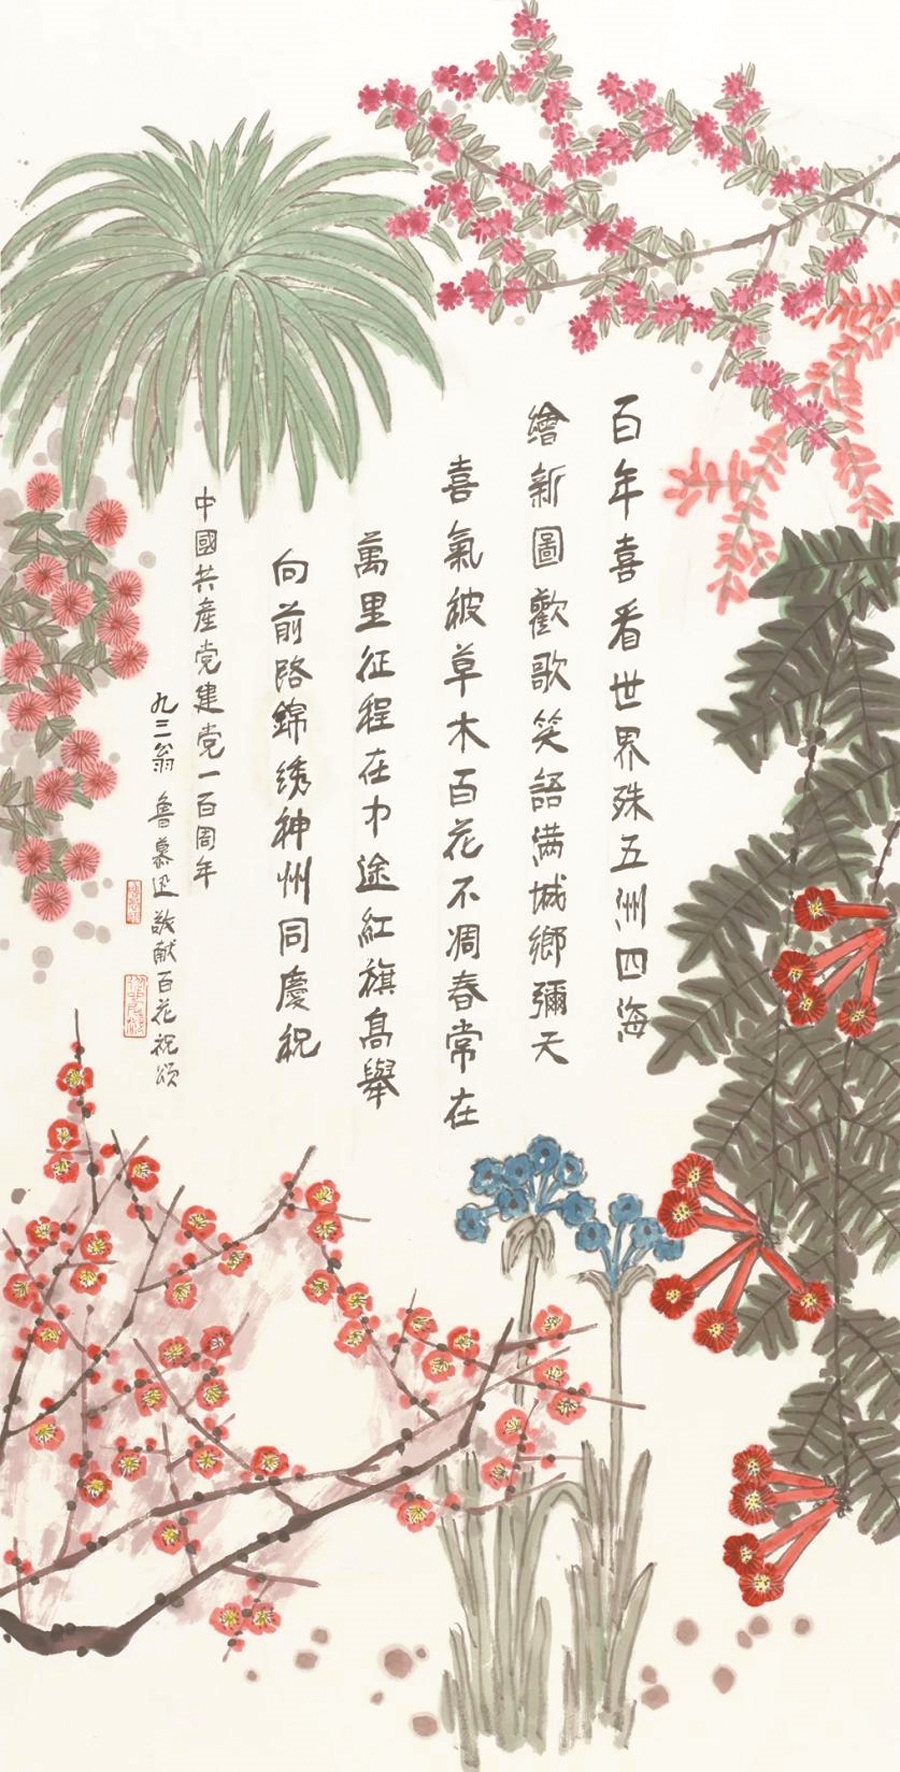 百年喜看世界殊五洲四海
繪新圖歡歌笑語满城鄉彌天
喜氣被草木百花不凋春常在
萬里征程在中途紅旗高舉
向前路錦绣神州同慶祝
中國共產党建党一百周年
九三翁 鲁慕迅敬献百花祝颂